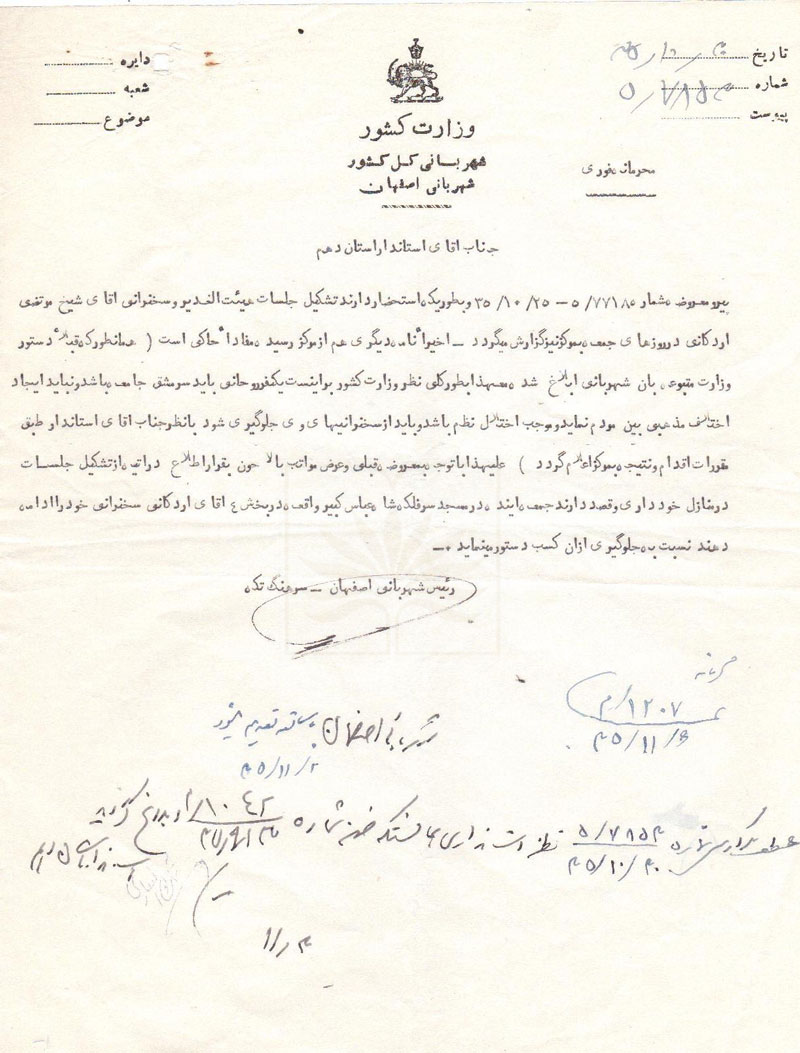 تاریخ ۳۵/۱۰/۳۰
شماره ۵/۷۸۵۳
پیوست
دایره
شعبه
موضوع
وزارت کشور
شهربانی کل کشور
شهربانی اصفهان
محرمانه فوری
جناب اقای استاندار استان دهم
پیرو معروضه شماره ۵/۷۷۱۸۵ – ۳۵/۱۰/۲۵ وبطوریکه استحضار دارند تشکیل جلسات هیئت الغدیر و سخنرانی اقای شیخ مرتضی
اردکانی در روزهای جمعه بمرکز نیز گزارش میگردد – اخیراً نامه دیگری هم از مرکز رسید مفاداً حاکی است ( همانطور که قبلاً دستور
وزارت متبوعه بان شهربانی ابلاغ شد معهذا بطور کلی نظر وزارت کشور بر اینست یکنفر روحانی باید سرمشق جامعه باشد و نباید ایجاد
اختلاف مذهبی بین مردم نماید و موجب اختلال نظم باشد و باید از سخنرانیهای وی جلوگیری شود با نظر جناب اقای استاندار طبق
مقررات اقدام و نتیجه بمرکز اعلام گردد ) علیهذا با توجه بمعروضه قبلی و عرض مراتب بالا چون بقرار اطلاع در اتیه از تشکیل جلسات
در منازل خود داری و قصد دارند جمعه ایند ه در مسجد سر فلکه شاه عباس کبیر واقعه در بخش ٤ اقای اردکانی سخنرانی خود را ادامه
دهند نسبت به جلوگیری از ان کسب دستور مینماید .–
رئیس شهربانی اصفهان – سرهنگ تکه
محرمانه
۱۲۰۷/م
۳۵/۱۱/۶
شهربانی اصفهان
۳۵/۱۱/۲
عطف بگزارش شماره ۵/۷۸۵۳ ۳۵/۱۰/۳۰ نظر استانداری همانستکه ضمن شماره ۱۰۴۲/م ابلاغ گردید
استاندار استان دهم